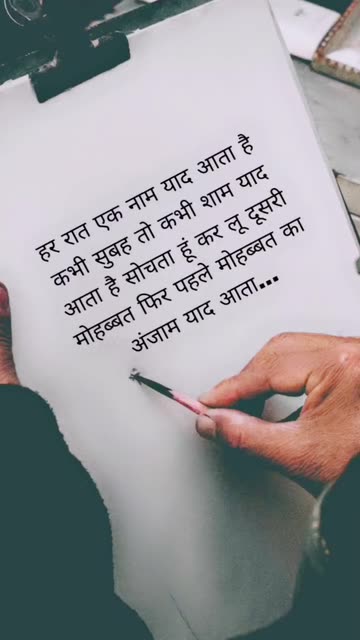 हर रात एक नाम याद आता है
कभी सुबह तो कभी शाम याद
आता है सोचता हूं कर लू दूसरी
मोहब्बत फिर पहले मोहब्बत का
अंजाम याद आता...